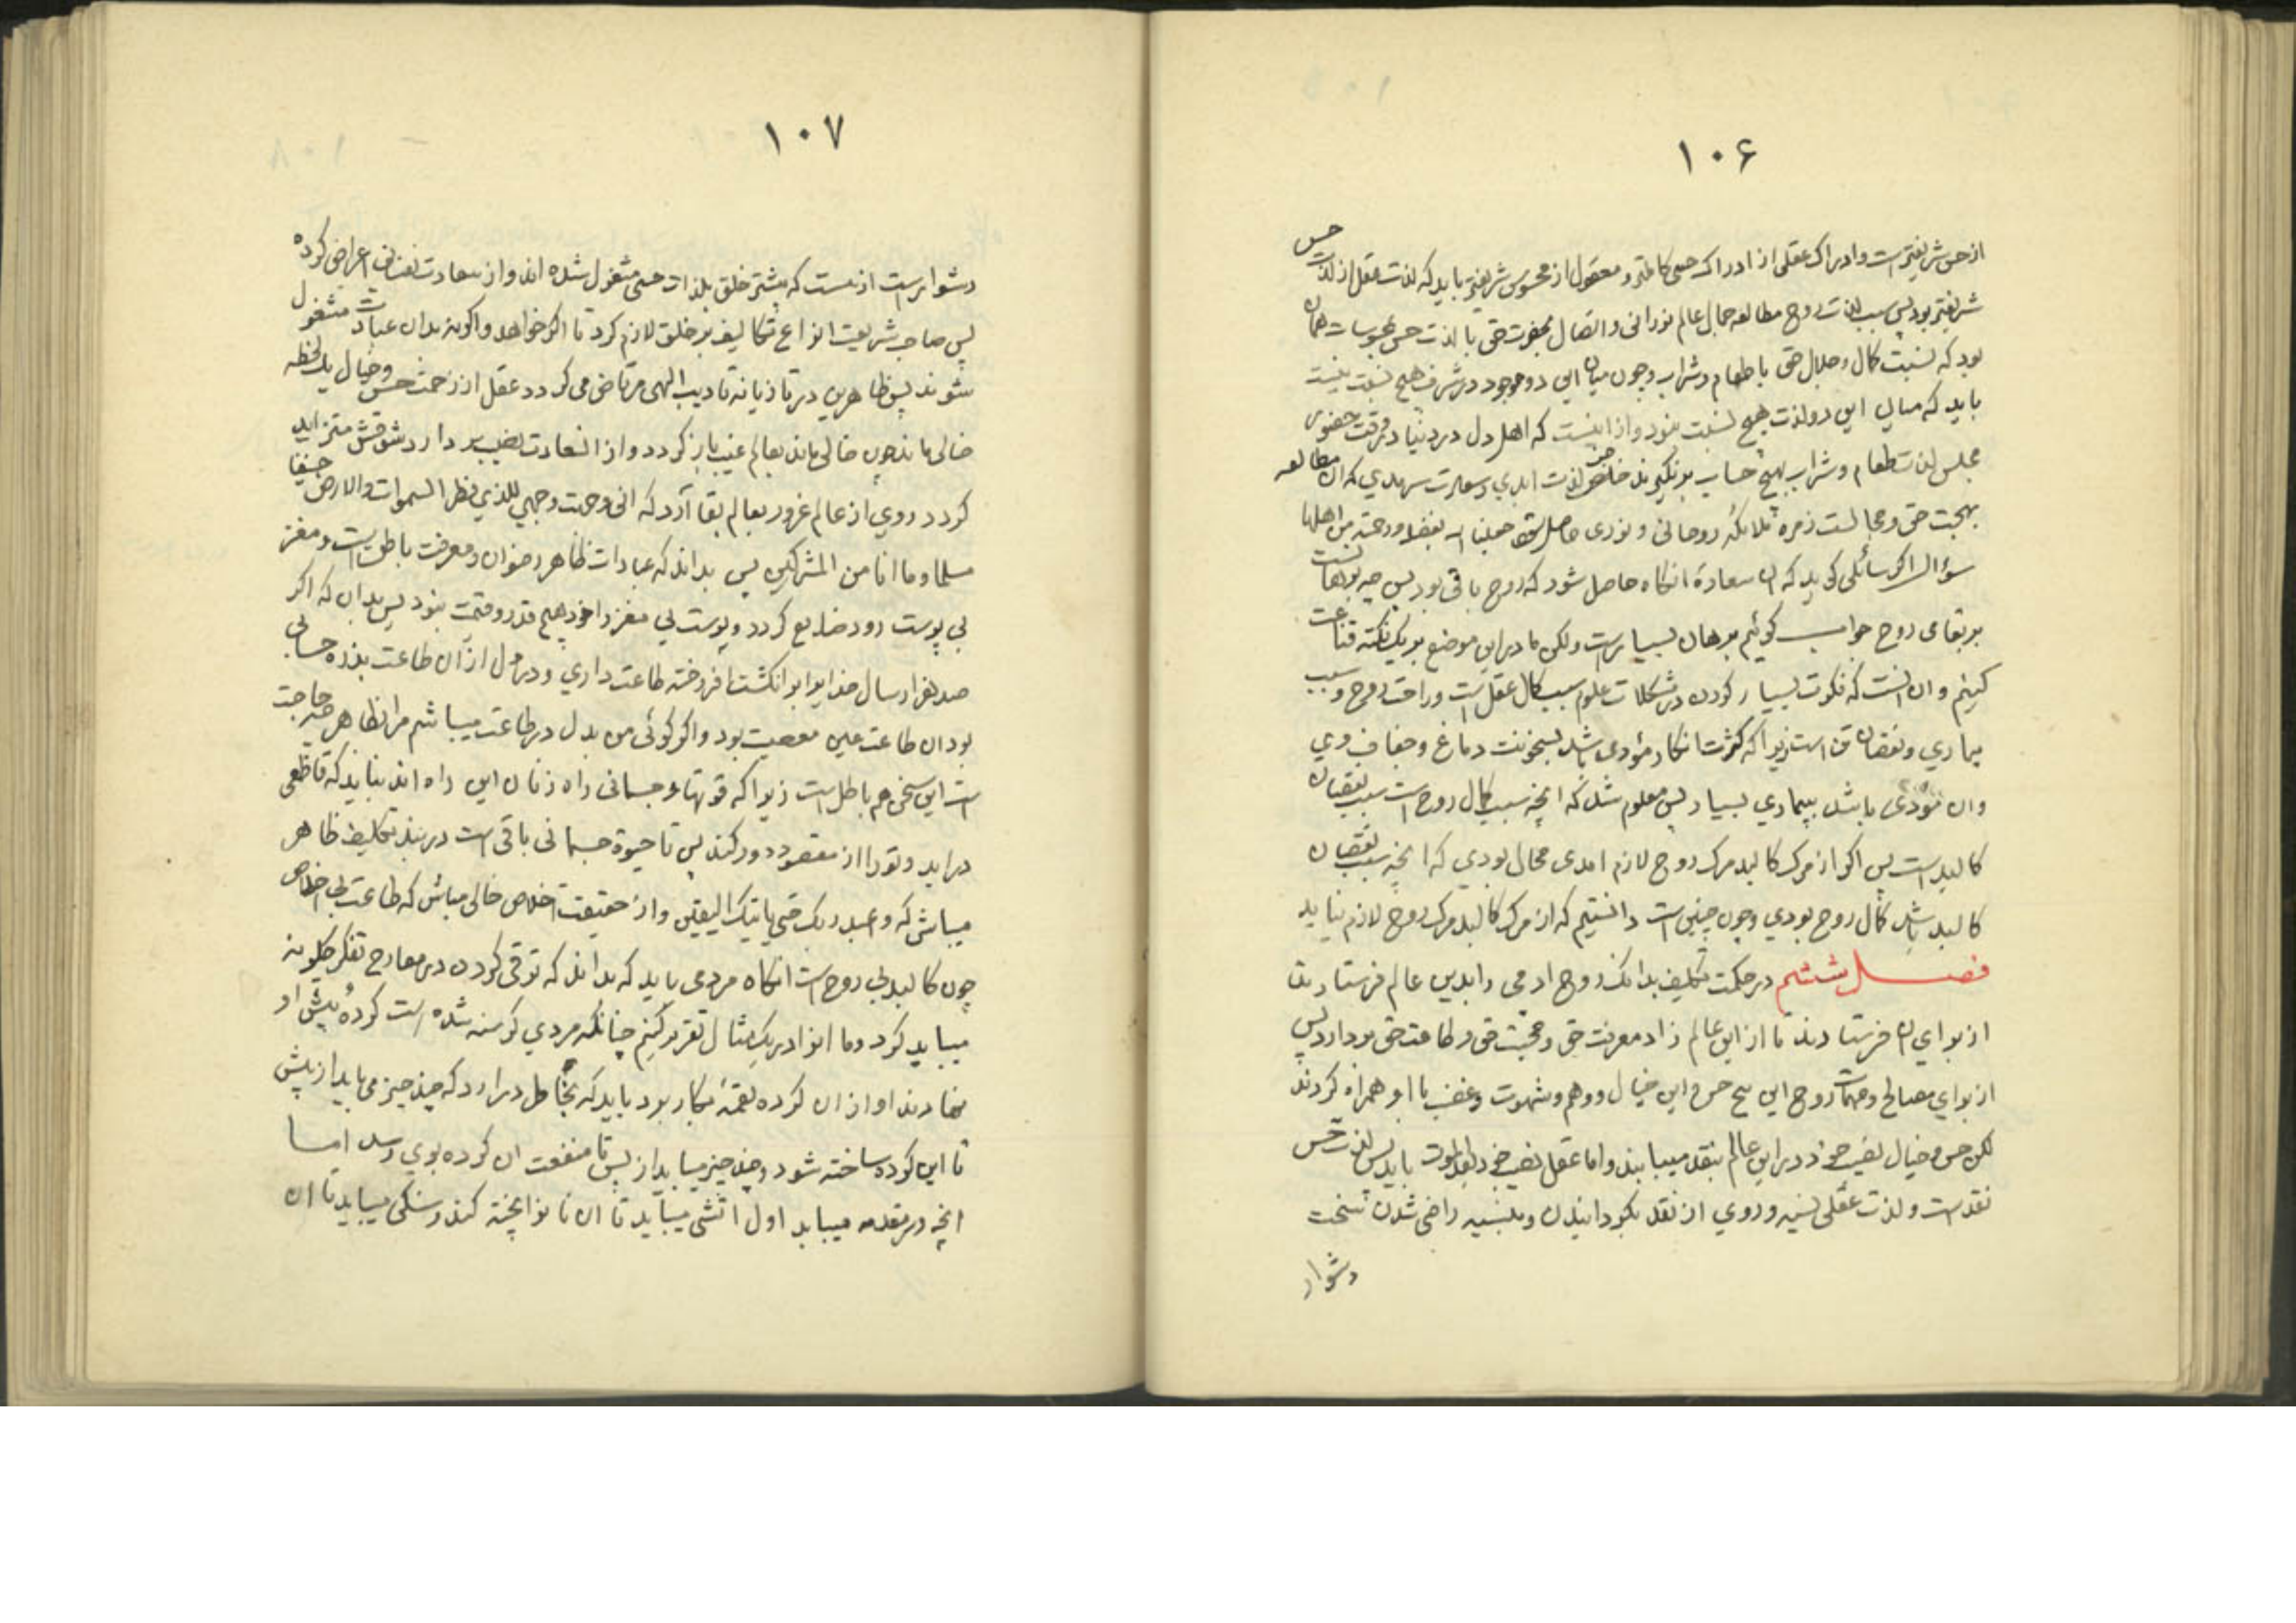 ۱۰۶
از حس شریفترست و ادراک عقلی از ادراک حسی کاملتر و معقول از محسوس شریفتر باید که لذت عقل از لذت حس
شریفتر بود پس سبب لذت روح مطالعه جمال عالم نورانی و اتصال بحضرت حق با لذت حس بمحسوسات همان
بود که نسبت کمال و جلال حق با طعام و شراب و چون میان این دو موجود در شرف هیچ نسبت نیست
باید که میان این دو لذت هیچ نسبت نبود و از اینست که اهل دل در دنیا در وقت حضور
مجلس لذت طعام و شراب بهیچ حساب برنگیرند خاصه لذت ابدی و سعادت سرمدی که آن مطالعه
بهجت حق و مجالست زمره ملائکه روحانی و نوری حاصل شود جعلنا الله بفضله ورحمته من اهلها
سؤال اگر سائلی گوید که این سعادة انگاه حاصل شود که روح باقی بود پس چه برهانست
بر بقای روح جواب گوئیم برهان بسیارست ولکن ما درین موضع بر یک نکته قناعت
کنیم و ان انست که فکرت بسیار کردن در مشکلات علوم سبب کمال عقل است و راحت روح و سبب
بیماری و نقصان تن است زیرا که کثرت افکار مؤدی باشد بسخونت دماغ و جفاف وی
وان مؤدی باشد ببیماری بسیار پس معلوم شد که انچه سبب کمال روح است سبب نقصان
کالبد است پس اگر از مرک کالبد مرک روح لازم امدی محال بودی که انچه سبب نقصان
کالبد باشد کمال روح بودی و چون چنین است دانستیم که از مرک کالبد مرک روح لازم نیاید
فصل ششم در حکمت تکلیف بدانک روح ادمی را بدین عالم فرستادند
از برای ان فرستادند تا از این عالم زاد معرفت حق و محبت حق و طاعت حق بردارد پس
از برای مصالح و مهمات روح این پنج حس و این خیال و وهم و شهوت و غضب با او همراه کردند
لکن حس و خیال نصیب خود درین عالم بنقد مییابند و اما عقل نصیب خود بعد الموت یابد پس لذت حس
نقد است و لذت عقلی نسیه و روی از نقد بگردانیدن و بنسیه راضی شدن سخت
دشوار
۱۰۷
دشوارست ازینست که بیشتر خلق بلذات حسی مشغول شده اند و از سعادت نفسانی اعراض کرده
پس صاحب شریعت انواع تکالیف بر خلق لازم کرد تا اگر خواهد و اگرنه بدان عبادت مشغول
شوند پس ظاهرین در تازیانه تادیب الهی مرتاض می گردد عقل از زحمت حس و خیال یک لحظه
خالی ماند چون خالی ماند بعالم غیب باز گردد و از ان سعادت نصیب بردارد شوقش متزاید
گردد روی از عالم غرور بعالم بقا آرد که انی وجهت وجهی للذی فطر السموات والارض حنیفا
مسلما وما انا من المشرکین پس بداند که عبادات ظاهر رضوان و معرفت باطن است و مغز
بی پوست زود ضایع گردد و پوست بی مغز را خود هیچ قدر و قیمت نبود پس بدان که اگر
صد هزار سال خدایرا بر انکشت افروخته طاعت داری و در دل از ان طاعت بذره حسابی
بود ان طاعت عین معصیت بود و اگر گوئی من بدل در طاعت میباشم مرا بظاهر چه حاجت
است این سخن هم باطل است زیرا که قوتهاء جسمانی راه زنان این راه اند بناید که قاطعی
دراید و تو را از مقصود دور کند پس تا حیوة جسمانی باقی است در بند تکلیف ظاهر
میباش که واعبد ربک حتی یاتیک الیقین و از حقیقت اخلاص خالی مباش که طاعت بی اخلاص
چون کالبد بی روح است انکاه مردمی باید که بداند که ترقی کردن در معارج تفکر چگونه
میباید کرد و ما انرا در یک مثال تقریر کنیم چنانکه مردی گرسنه شده است کرده پیش او
نهادند او از ان کرده لقمه بکار برد باید که بخاطر درارد که چند چیز می باید از پیش
تا این کرده ساخته شود و چند چیز میباید از پس تا منفعت ان کرده بوی رسد اما
انچه در مقدمه میباید اول اتشی میباید تا ان نانرا پخته کند و سنگی میباید تا ان